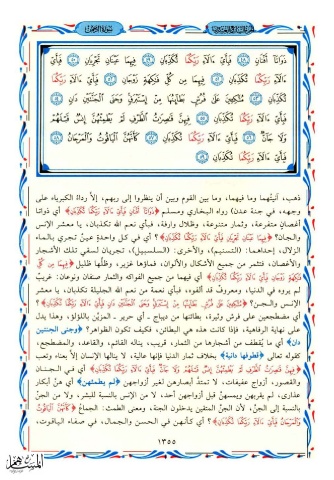 سورة الرحمن
ذَوَاتَا أَفْنَانٍ ۝٤٨ فَبِأَيِّ ءَالَآءِ رَبِّكُمَا تُكَذِّبَانِ ۝٤٩ فِيهِمَا عَيْنَانِ تَجْرِيَانِ ۝٥٠ فَبِأَيِّ
ءَالَآءِ رَبِّكُمَا تُكَذِّبَانِ ۝٥١ فِيهِمَا مِن كُلِّ فَٰكِهَةٍ زَوْجَانِ ۝٥٢ فَبِأَيِّ ءَالَآءِ رَبِّكُمَا
تُكَذِّبَانِ ۝٥٣ مُتَّكِـِٔينَ عَلَىٰ فُرُشٍۭ بَطَآئِنُهَا مِنْ إِسْتَبْرَقٍ وَجَنَى ٱلْجَنَّتَيْنِ دَانٍ ۝٥٤ فَبِأَيِّ
ءَالَآءِ رَبِّكُمَا تُكَذِّبَانِ ۝٥٥ فِيهِنَّ قَٰصِرَٰتُ ٱلطَّرْفِ لَمْ يَطْمِثْهُنَّ إِنسٌ قَبْلَهُمْ
وَلَا جَآنٌّ ۝٥٦ فَبِأَيِّ ءَالَآءِ رَبِّكُمَا تُكَذِّبَانِ ۝٥٧ كَأَنَّهُنَّ ٱلْيَاقُوتُ وَٱلْمَرْجَانُ ۝٥٨ فَبِأَيِّ
ءَالَآءِ رَبِّكُمَا تُكَذِّبَانِ ۝٥٩
ذهب، آنيتُهما وما فيهما، وما بين القوم وبين أن ينظروا إلى ربهم، إلاَّ رداءُ الكبرياء على
وجهه، في جنة عدن) رواه البخاري ومسلم ﴿ذَوَاتَا أَفْنَانٍ فَبِأَيِّ ءَالَآءِ رَبِّكُمَا تُكَذِّبَانِ﴾ أي ذواتا
أغصانٍ متفرعة، وثمار متنوعة، وظلال وارفة، فبأي نعم الله تكذبان، يا معشر الإنس
والجان؟ ﴿فِيهِمَا عَيْنَانِ تَجْرِيَانِ فَبِأَيِّ ءَالَآءِ رَبِّكُمَا تُكَذِّبَانِ﴾؟ أي في كل واحدةٍ عينٌ تجري بالماء
الزلال، إحداهما: (التسنيم)، والأخرى: (السلسبيل)، تجريان لسقي تلك الأشجار
والأغصان، فتثمر من جميع الأشكال والألوان، فماؤها غزير، وظلُّها ظليل ﴿فِيهِمَا مِن كُلِّ
فَٰكِهَةٍ زَوْجَانِ فَبِأَيِّ ءَالَآءِ رَبِّكُمَا تُكَذِّبَانِ﴾ أي فيهما من جميع الفواكه والثمار صنفان ونوعان: غريبٌ
لم يروه في الدنيا، ومعروفٌ قد ألفوه، فبأي نعمة من نعم الله الجليلة تكذبان، يا معشر
الإنس والجن؟ ﴿مُتَّكِـِٔينَ عَلَىٰ فُرُشٍۭ بَطَآئِنُهَا مِنْ إِسْتَبْرَقٍ وَجَنَى ٱلْجَنَّتَيْنِ دَانٍ فَبِأَيِّ ءَالَآءِ رَبِّكُمَا تُكَذِّبَانِ﴾؟
أي مضطجعين على فرش وثيرة، بطائنها من ديباج - أي حرير - المزيَّن باللؤلؤ، وهذا يدل
على نهاية الرفاهية، فإذا كانت هذه هي البطائن، فكيف تكون الظواهر؟ ﴿وجنى الجنتين
دان﴾ أي ما يُقطف من أشجارها من الثمار، قريب، يناله القائم، والقاعد، والمضطجع،
كقوله تعالى ﴿قطوفها دانية﴾ بخلاف ثمار الدنيا فإنها عالية، لا ينالها الإنسان إلاَّ بعناءٍ وتعب
﴿فِيهِنَّ قَٰصِرَٰتُ ٱلطَّرْفِ لَمْ يَطْمِثْهُنَّ إِنسٌ قَبْلَهُمْ وَلَا جَآنٌّ فَبِأَيِّ ءَالَآءِ رَبِّكُمَا تُكَذِّبَانِ﴾ أي في الجنان
والقصور، أزواج عفيفات، لا تمتدُّ أبصارهن لغير أزواجهن ﴿لم يطمثهن﴾ أي هنَّ أبكار
عذارى، لم يقربهن ويمسهنَّ قبل أزواجهن أحد، لا من الإنس بالنسبة للبشر، ولا من الجنِّ
بالنسبة إلى الجنِّ، لأن الجنَّ المتقين يدخلون الجنة، ومعنى الطمث: الجماعُ ﴿كَأَنَّهُنَّ ٱلْيَاقُوتُ
وَٱلْمَرْجَانُ فَبِأَيِّ ءَالَآءِ رَبِّكُمَا تُكَذِّبَانِ﴾؟ أي كأنهن في الحسن والجمال، في صفاء الياقوت،
١٣٥٥